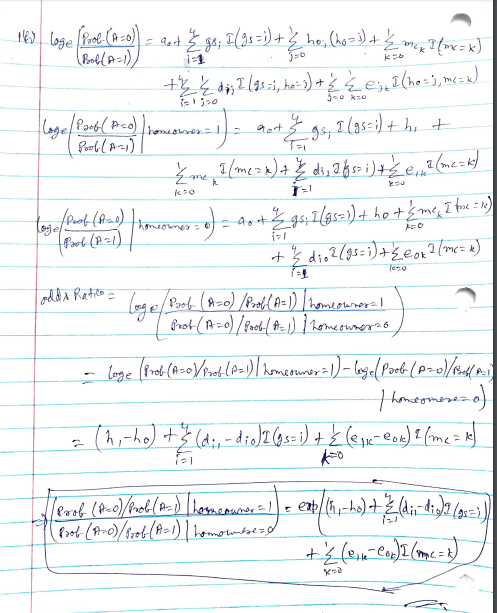 1(e) loge (Prob(A=0) / Prob(A=1)) = a₀ + Σ_{i=1}^{4} gsᵢ I(gs=i) + Σ_{j=0}^{1} hoⱼ (ho=j) + Σ_{k=0}^{1} mcₖ I(mc=k)
+ Σ_{i=1}^{4} Σ_{j=0}^{1} dᵢⱼ I(gs=i, ho=j) + Σ_{j=0}^{1} Σ_{k=0}^{1} eⱼₖ I(ho=j, mc=k)
loge (Prob(A=0) / Prob(A=1) | homeowner=1) = a₀ + Σ_{i=1}^{4} gsᵢ I(gs=i) + h₁ +
Σ_{k=0}^{1} mcₖ I(mc=k) + Σ_{i=1}^{4} dᵢ₁ I(gs=i) + Σ_{k=0}^{1} e₁ₖ I(mc=k)
loge (Prob(A=0) / Prob(A=1) | homeowner=0) = a₀ + Σ_{i=1}^{4} gsᵢ I(gs=i) + h₀ + Σ_{k=0}^{1} mcₖ I(mc=k)
+ Σ_{i=1}^{4} dᵢ₀ I(gs=i) + Σ_{k=0}^{1} e₀ₖ I(mc=k)
odds Ratio = loge (Prob(A=0)/Prob(A=1) | homeowner=1
Prob(A=0)/Prob(A=1) | homeowner=0)
= loge (Prob(A=0)/Prob(A=1) | homeowner=1) - loge (Prob(A=0)/Prob(A=1)
| homeowner=0)
= (h₁-h₀) + Σ_{i=1}^{4} (dᵢ₁-dᵢ₀) I(gs=i) + Σ_{k=0}^{1} (e₁ₖ-e₀ₖ) I(mc=k)
⇒ (Prob(A=0)/Prob(A=1) | homeowner=1 / Prob(A=0)/Prob(A=1) | homeowner=0) = exp((h₁-h₀) + Σ_{i=1}^{4} (dᵢ₁-dᵢ₀) I(gs=i)
+ Σ_{k=0}^{1} (e₁ₖ-e₀ₖ) I(mc=k)